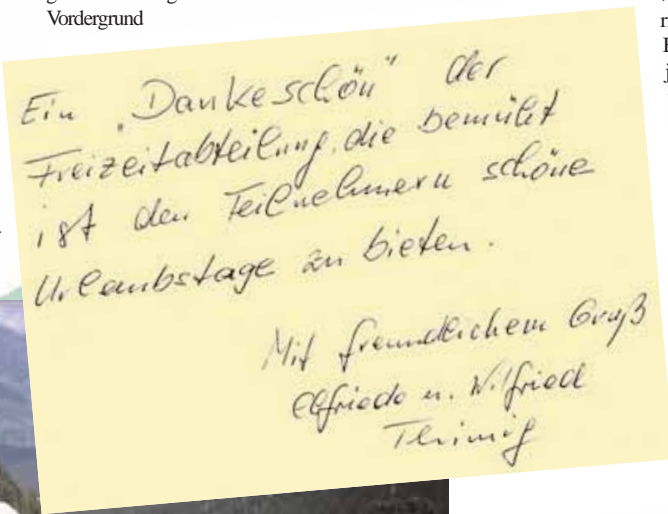 Vordergrund
Ein „Dankeschön" der
Freizeitabteilung, die bemüht
ist den Teilnehmern schöne
Urlaubstage zu bieten.
Mit freundlichem Gruß
Elfriede u. Wilfried
Thimig